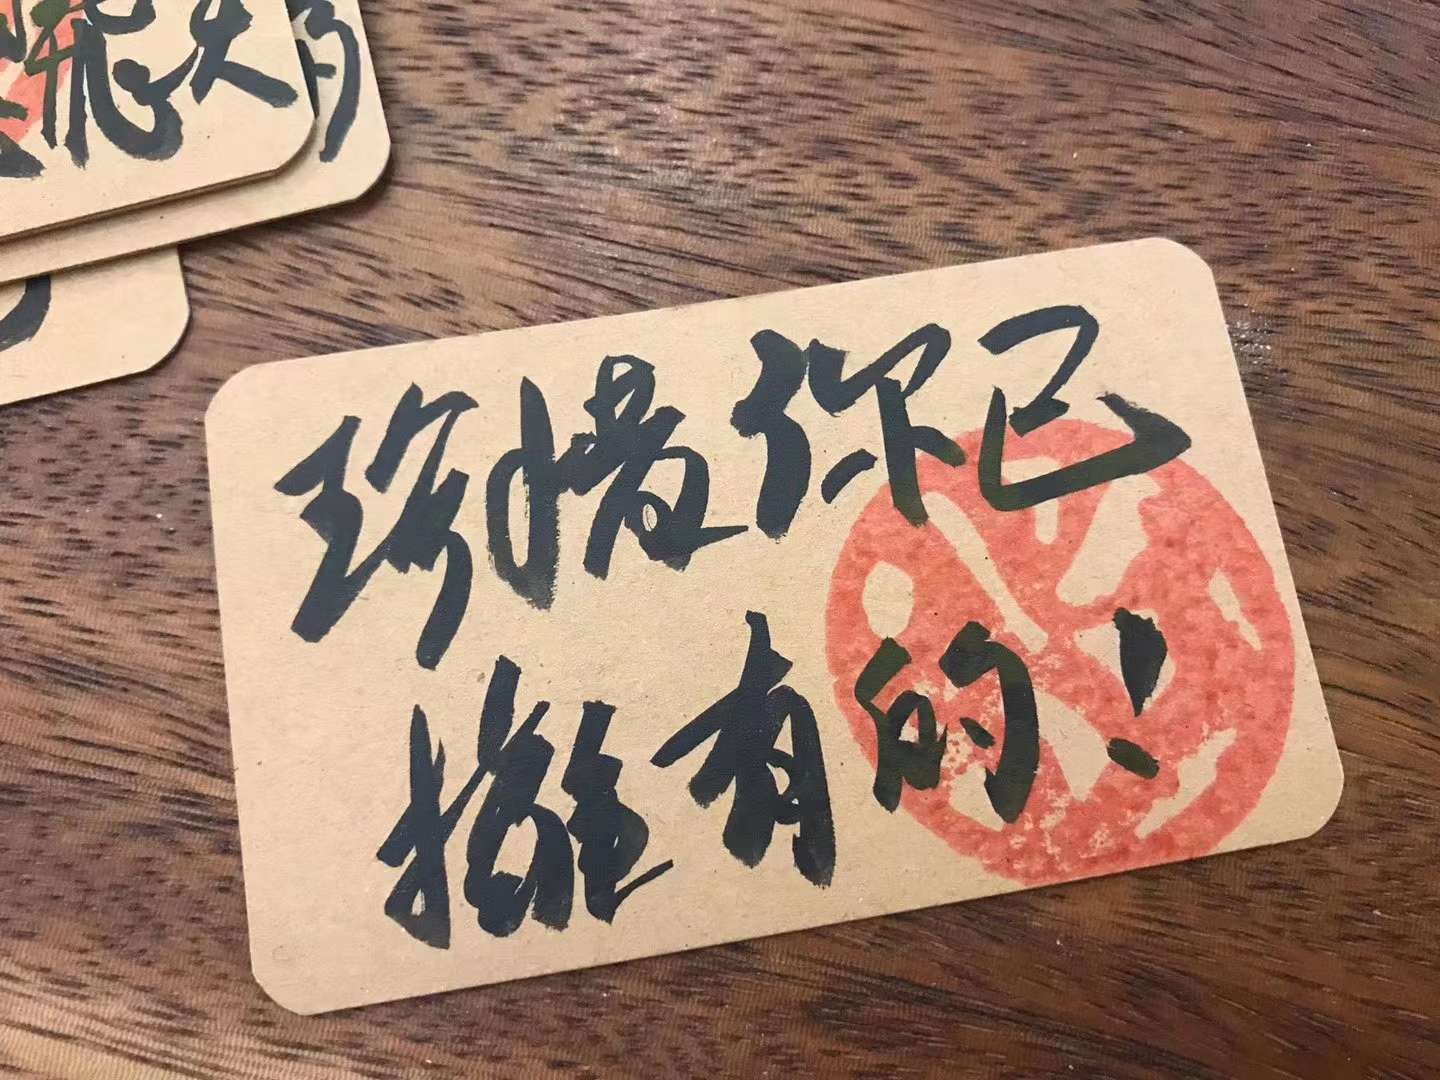 飛天
珍惜你已
擁有的！